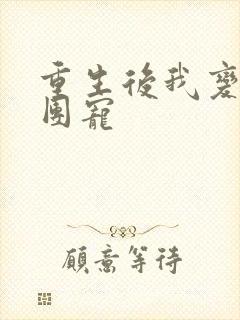 重生後我變
團寵
願意等待